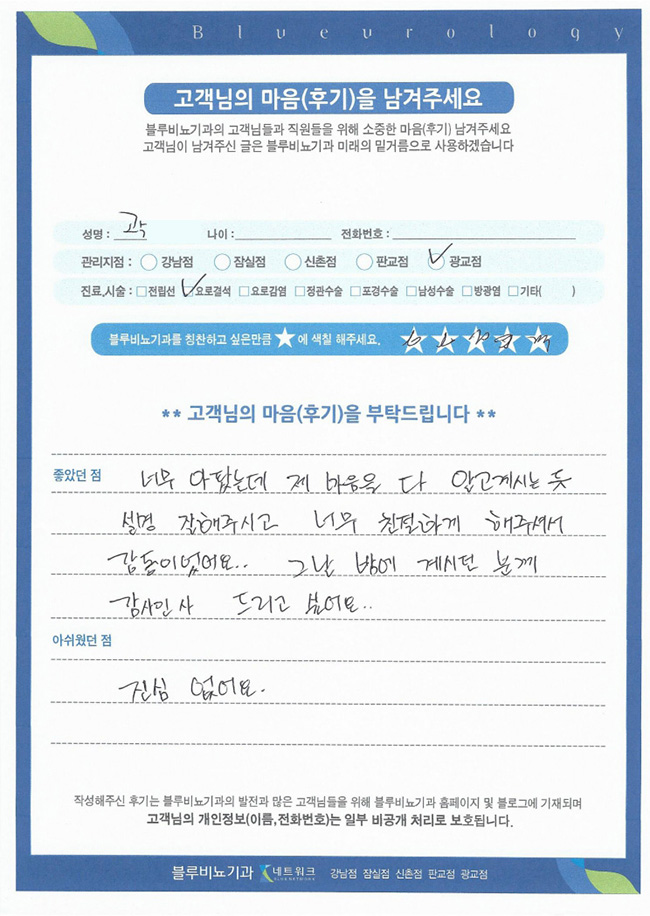 Blueurology
고객님의 마음(후기)을 남겨주세요
블루비뇨기과의 고객님들과 직원들을 위해 소중한 마음(후기) 남겨주세요
고객님이 남겨주신 글은 블루비뇨기과 미래의 밑거름으로 사용하겠습니다
성명 : 곽 나이 : 전화번호 :
관리지점 : 강남점 잠실점 신촌점 판교점 광교점
진료,시술 : 전립선 요로결석 요로감염 정관수술 포경수술 남성수술 방광염 기타( )
블루비뇨기과를 칭찬하고 싶은만큼 ★에 색칠 해주세요.
** 고객님의 마음(후기)을 부탁드립니다 **
좋았던 점 너무 아팠는데 제 마음을 다 알고계시는 듯
설명 잘해주시고 너무 친절하게 해주셔서
감동이었어요.. 그날 밤에 계시던 분께
감사인사 드리고 싶어요..
아쉬웠던 점
진심 없어요.
작성해주신 후기는 블루비뇨기과의 발전과 많은 고객님들을 위해 블루비뇨기과 홈페이지 및 블로그에 기재되며
고객님의 개인정보(이름,전화번호)는 일부 비공개 처리로 보호됩니다.
블루비뇨기과 네트워크 강남점 잠실점 신촌점 판교점 광교점